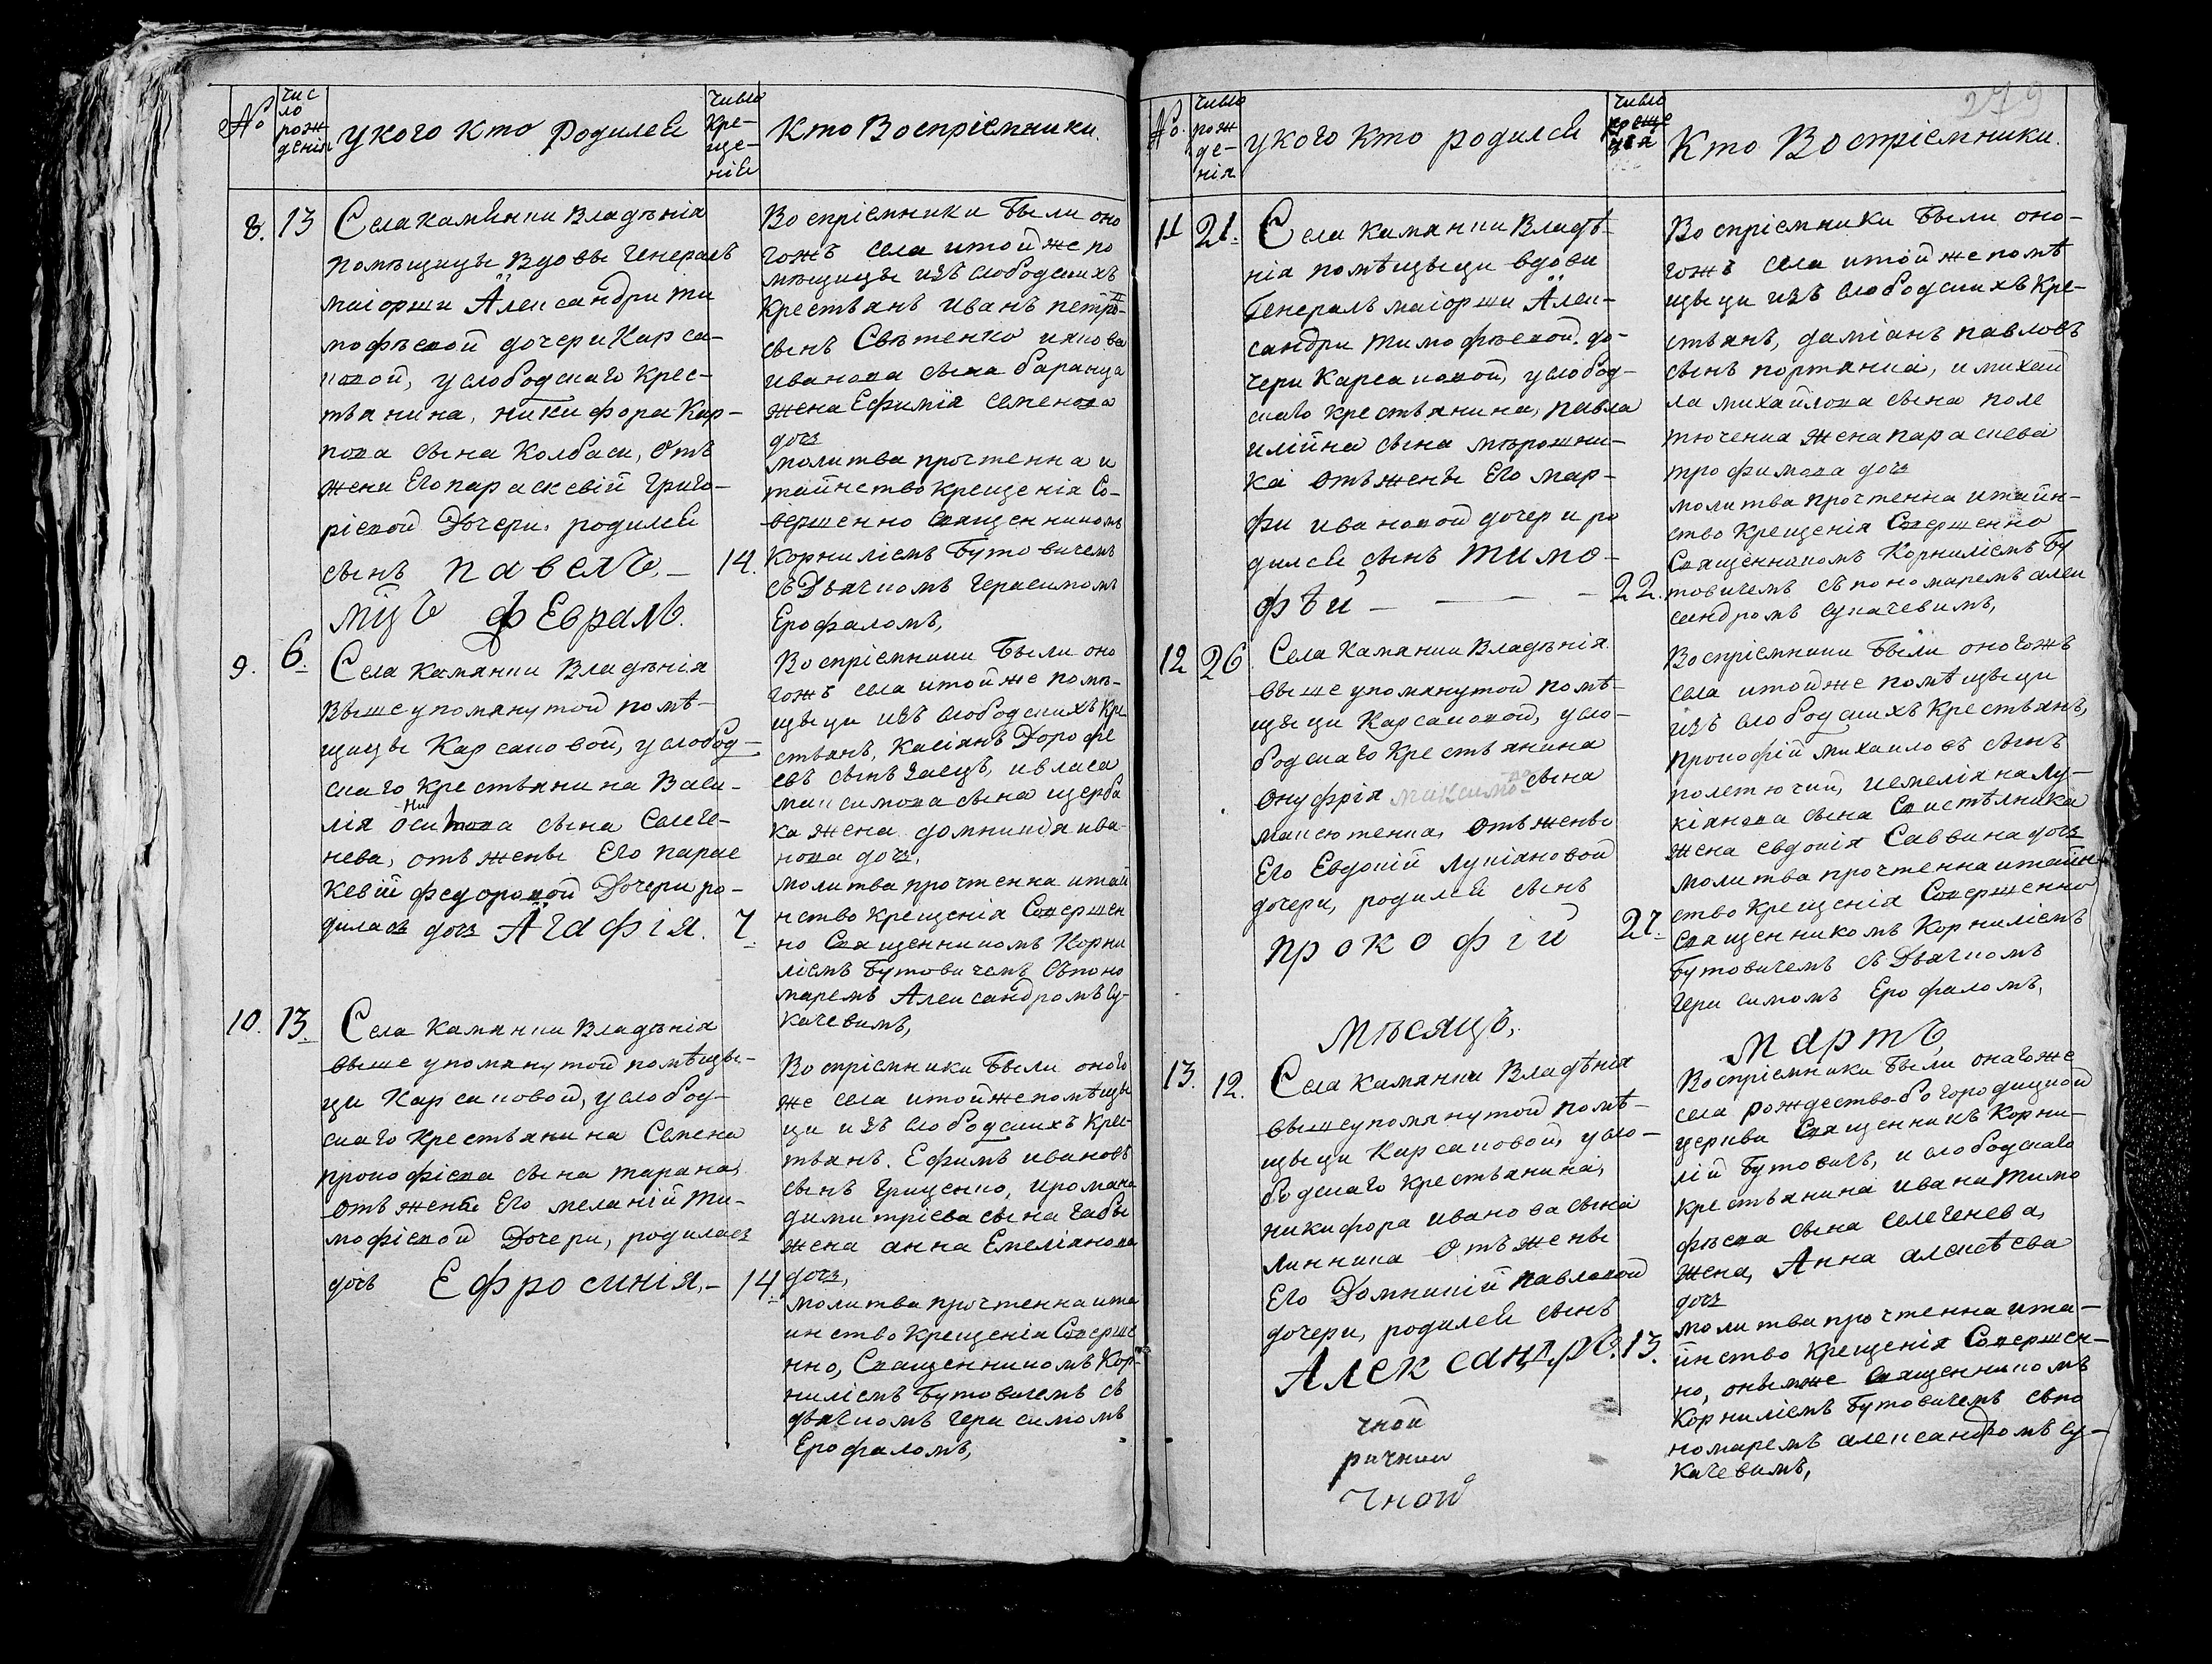 №
чис
ло
рож
денія
у кого кто родился
число
кре-
ще-
нія
Кто Воспріємники.
8. 13
Села камянки Владѣнія
помѣщицы вдовы генералъ
маіорши Александри ти
мофѣевой дочери Карса-
ковой, услободскаго крес-
тянина, никифора Кар-
пова сына Колбаси, отъ
жени Его параскевій григо-
рієвой Дочери. родился
сынъ павелъ — 14.
Воспріємники были оно
гожъ села итойже по
мѣщицы изъ слободскихъ
крестянъ иванъ петро-
сынъ Свѣтенко иякова
иванова сына баранца
жена Ефимія семенова
дочь
молитва прочтенна и
таинство крещенія Со-
вершенно Священникомъ
Корниліємъ Бутовичемъ
съ Дьячкомъ Герасимомъ
Ерофаломъ,
мцъ февраль.
9. 6.
Села камянки Владѣнія
вышеупомянутой помѣ-
щицы Карсаковой, услобод-
скаго крестянина Васи-
лія осипова сына Селеге-
нева, отъ жены Его парас
кевій федоровой Дочери ро-
дилась дочь Агафія. 7
Воспріємники были оно
гожъ села итойже помѣ-
щыци изъ слободскихъ кре
стьянъ, Касіянъ Дорофе
евъ сынъ Заецъ, ивласа
максимова сына щерба
ка жена домникія ива
нова дочь,
молитва прочтенна итаи
нство крещенія Совершен
но Священникомъ Корни
ліємъ Бутовичемъ съпоно
маремъ Александромъ Су-
качевимъ,
10. 13.
Села Камянки Владѣнія
вышеупомянутой помѣщы-
ци Карсаковой, услобод-
скаго крестьянина Семена
прокофієва сына тарана,
отъ жены Его меланій ти-
мофієвой Дочери, родилась
дочь Ефросинія, — 14.
Воспріємники были оного
же села итойжепомѣщы
ци изъ слободскихъ крес
тьянъ. Ефимъ ивановъ
сынъ Грищенко, иромана
димитрієва сына габы
жена анна Емеліянова
дочь,
молитва прочтенна ита
инство крещенія Соверше
нно, Священникомъ Кор-
ниліємъ Бутовичемъ съ
дьячкомъ герасимомъ
Ерофаломъ,
279
№.
число
рож
де-
нія
у кого кто родился
число
креще
нія
Кто Воспріємники.
11 21.
Села камянки Владѣ-
нія помѣщыци вдови
генералъ маіорши Алек-
сандри тимофѣевой. до-
чери Карсаковой, услобод-
скаго крестьянина, павла
илійна сына мѣрошни-
ка отъжены Его мар-
фи ивановой дочери ро
дился сынъ тимо-
фѣй — — — 22.
Воспріємники были оно-
гожъ села итойжепомѣ
щыци изъ слободскихъ кре-
стьянъ, даміанъ павловъ
сынъ портянка, имихай
ла михайлова сына поле
тюченка жена параскева
трофимова дочь
молитва прочтенна итаин-
ство крещенія Совершенно
Священникомъ Корниліємъ Бу
товичемъ съпономаремъ алек
сандромъ сукачевимъ,
12 26
Села камянки Владѣнія
вышеупомянутой помѣ-
щыци Карсаковой, усло-
бодскаго крестьянина
онуфрія максимова сына
максютенка, отъжены
Его Евдокій лукіяновой
дочери, родился сынъ
прокофій 27.
Воспріємники были оногожъ
села итойже помѣщыци
изъ слободскихъ крестьянъ,
прокофій михаиловъ сынъ
полетючий, иемеліана лу-
кіянова сына Свистѣлника
жена евдокія Саввина дочь
молитва прочтенна итаин-
ство крещенія Совершенно
Священникомъ Корниліємъ
Бутовичемъ съ Дьячкомъ
герасимомъ Ерофаломъ,
Мѣсяцъ, мартъ,
13. 12.
Села камянки Владѣнія
вышеупомянутой помѣ-
щыци Карсаковой, усло-
бодскаго крестьянина,
никифора иванова сына
линника Отъжены
Его Домникій павловой
дочери, родился сынъ
Александръ. 13.
Воспріємники были оногоже
села рождество-богородицкой
церкви Священникъ Корни-
лій Бутовичъ, и слободскаго
крестьянина ивана тимо
фѣева сына селегенева,
жена, Анна алексѣева
дочь
молитва прочтенна ита-
инство крещенія Совершен-
но, онымже Священникомъ
Корниліємъ Бутовичемъ съпо
номаремъ александромъ су-
качевимъ,
чной
ричнии
чной